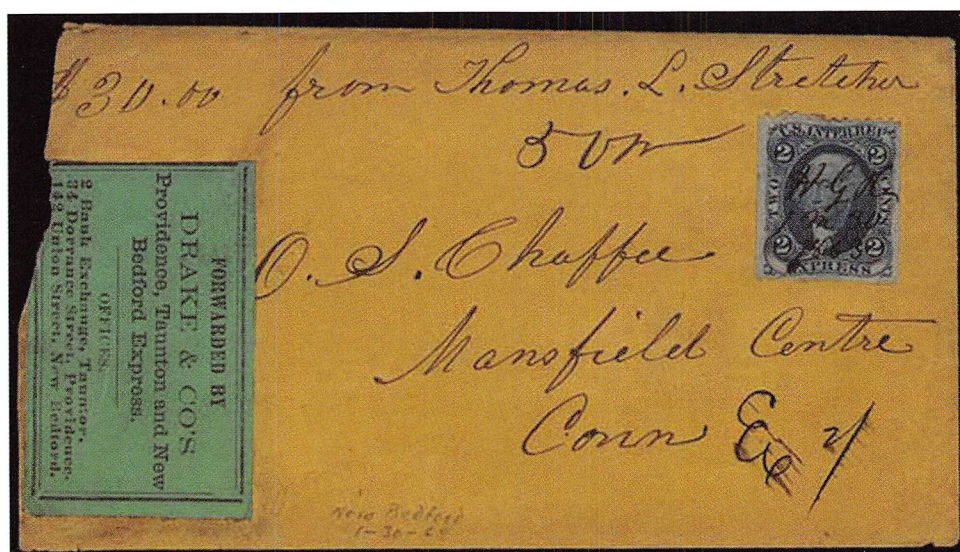 $30.00 from Thomas. L. Stretcher
U.S. INTER.REV.
2 2
TWO CENTS
2 2
EXPRESS
O. S. Chaffee
Mansfield Centre
Conn
FORWARDED BY
DRAKE & CO'S
Providence, Taunton and New
Bedford Express.
OFFICES.
2 Bank Exchange, Taunton.
34 Dorrance Street, Providence.
142 Union Street, New Bedford.
New Bedford